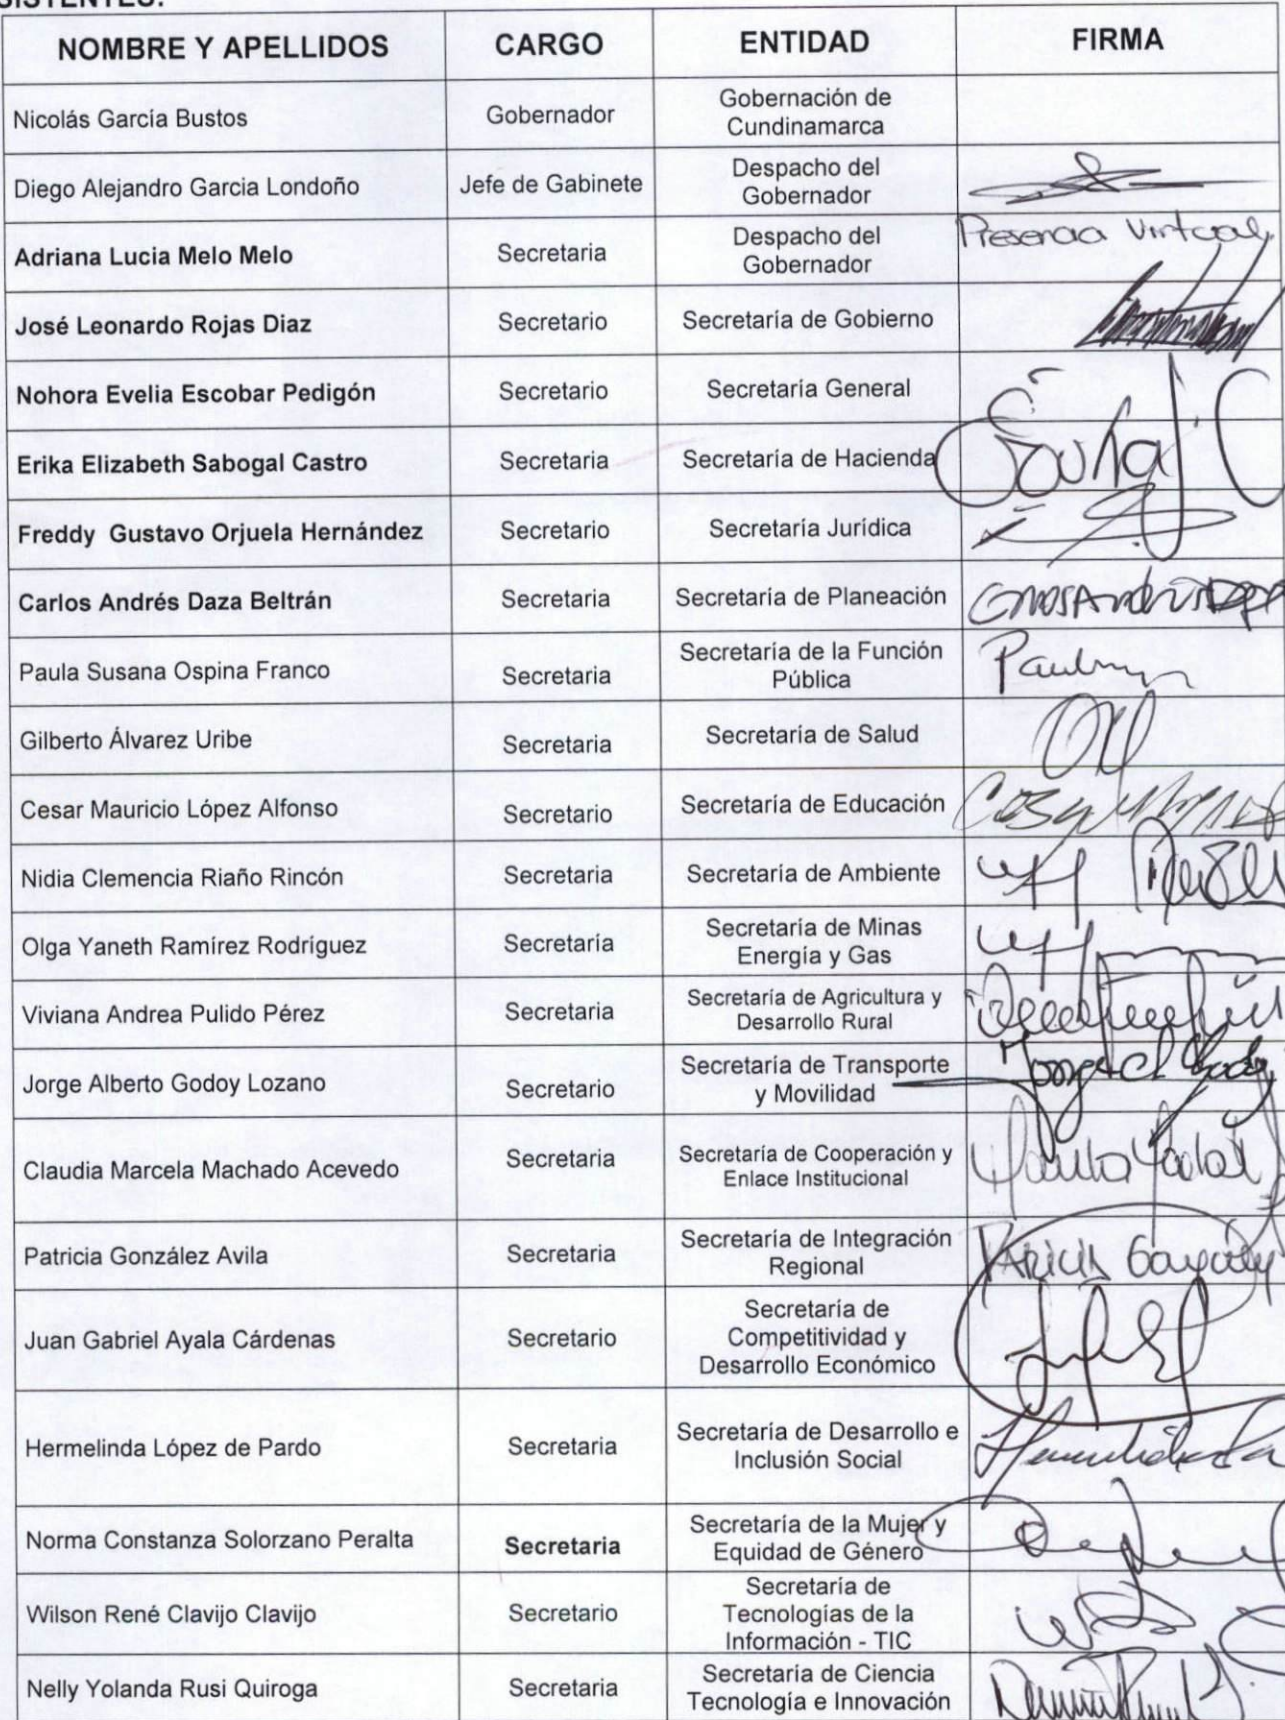 SISTENTES:
NOMBRE Y APELLIDOS CARGO ENTIDAD FIRMA
Nicolás García Bustos Gobernador Gobernación de
Cundinamarca
Diego Alejandro Garcia Londoño Jefe de Gabinete Despacho del
Gobernador
Adriana Lucia Melo Melo Secretaria Despacho del
Gobernador
Presencia Virtual
José Leonardo Rojas Diaz Secretario Secretaría de Gobierno
Nohora Evelia Escobar Pedigón Secretario Secretaría General
Erika Elizabeth Sabogal Castro Secretaria Secretaría de Hacienda
Freddy Gustavo Orjuela Hernández Secretario Secretaría Jurídica
Carlos Andrés Daza Beltrán Secretaria Secretaría de Planeación
Paula Susana Ospina Franco Secretaria Secretaría de la Función
Pública
Gilberto Álvarez Uribe Secretaria Secretaría de Salud
Cesar Mauricio López Alfonso Secretario Secretaría de Educación
Nidia Clemencia Riaño Rincón Secretaria Secretaría de Ambiente
Olga Yaneth Ramírez Rodríguez Secretaria Secretaría de Minas
Energía y Gas
Viviana Andrea Pulido Pérez Secretaria Secretaría de Agricultura y
Desarrollo Rural
Jorge Alberto Godoy Lozano Secretario Secretaría de Transporte
y Movilidad
Claudia Marcela Machado Acevedo Secretaria Secretaría de Cooperación y
Enlace Institucional
Patricia González Avila Secretaria Secretaría de Integración
Regional
Juan Gabriel Ayala Cárdenas Secretario Secretaría de
Competitividad y
Desarrollo Económico
Hermelinda López de Pardo Secretaria Secretaría de Desarrollo e
Inclusión Social
Norma Constanza Solorzano Peralta Secretaria Secretaría de la Mujer y
Equidad de Género
Wilson René Clavijo Clavijo Secretario Secretaría de
Tecnologías de la
Información - TIC
Nelly Yolanda Rusi Quiroga Secretaria Secretaría de Ciencia
Tecnología e Innovación